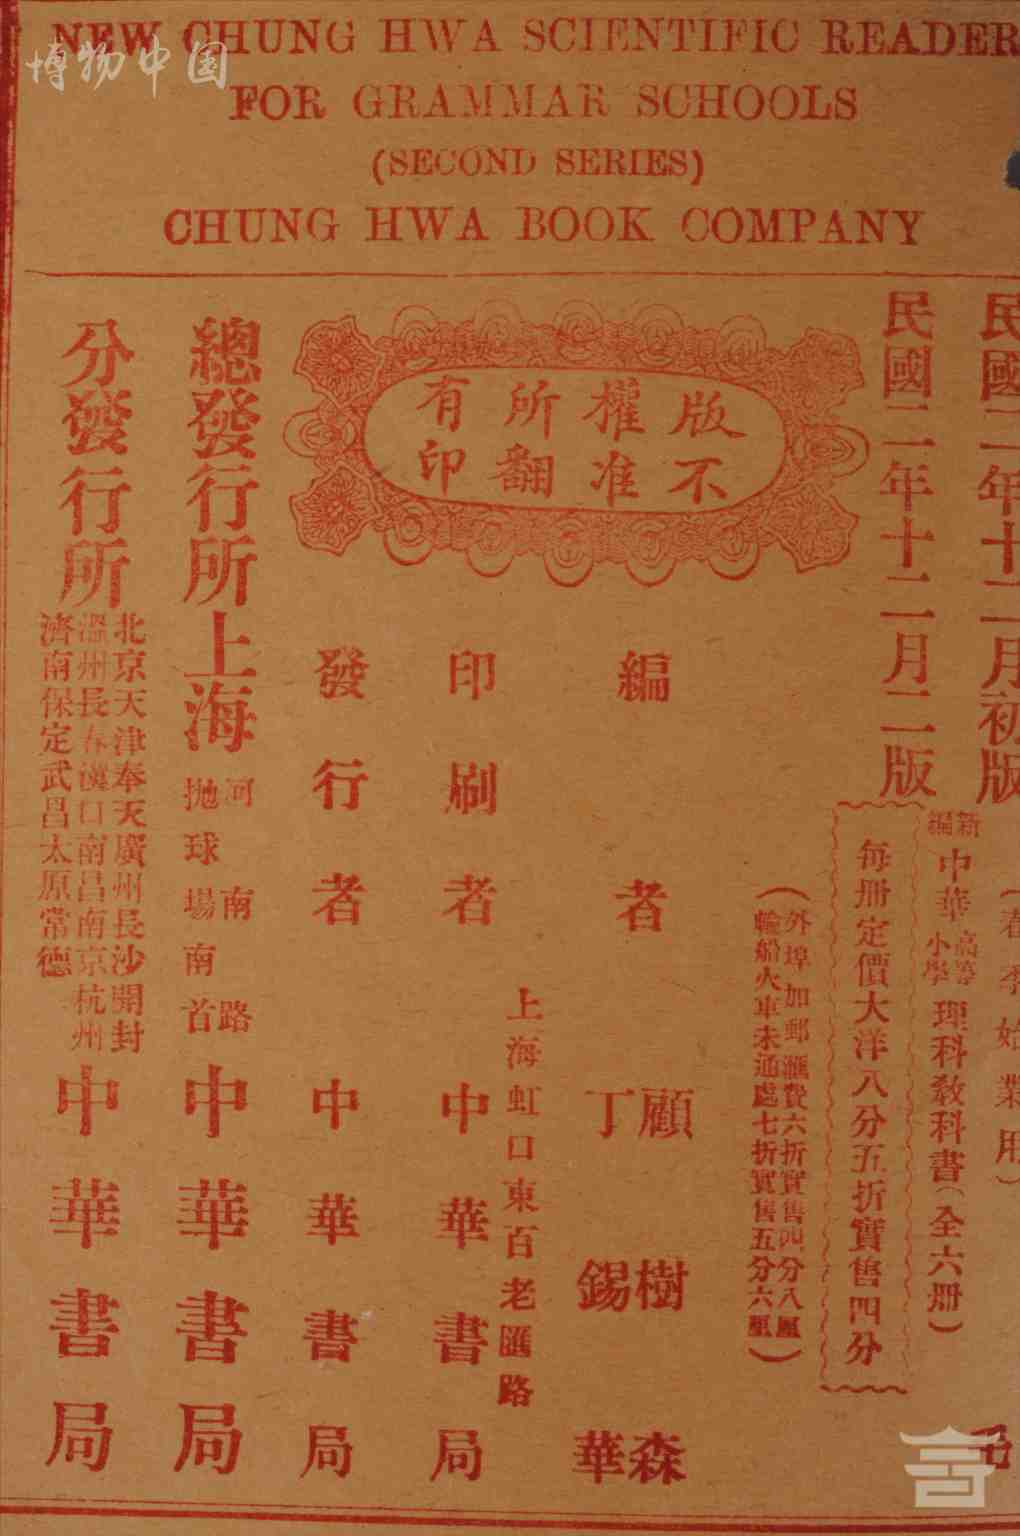 NEW CHUNG HWA SCIENTIFIC READER
FOR GRAMMAR SCHOOLS
(SECOND SERIES)
CHUNG HWA BOOK COMPANY
博物中国
民國二年十二月初版
民國二年十二月二版
(春季始業用)
新編中華高等小學理科教科書(全六册)
每册定價大洋八分五折實售四分
(外埠加郵滙費六折實售四分八厘
輪船火車未通處七折實售五分六厘)
版權所有
不准翻印
編者 顧樹森
丁錫華
上海虹口東百老匯路
印刷者 中華書局
發行者 中華書局
總發行所 上海 河南路
抛球場南首 中華書局
分發行所 北京天津奉天廣州長沙開封
溫州長春漢口南昌南京杭州
濟南保定武昌太原常德
中華書局